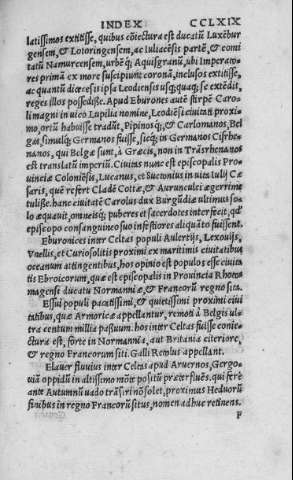 INDEX CCLXIX
latissimos extitisse, quibus cõiectura est ducatũ Luxẽbur
gensem, & Lotoringensem, ac Iuliacẽsis partẽ, & comi
tatũ Namurcensem, urbẽq; Aquisgranũ, ubi Imperato-
res primã ex more suscipiunt coronã, inclusos extitisse,
ac quantũ diœcesis ipsa Leodiensis usq;quaq; se extẽdit,
reges illos possedisse. Apud Eburones autẽ stirpẽ Caro-
li magni in uico Lupilia nomine, Leodiẽsi ciuitati proxi
mo, ortũ habuisse tradũt, Pipinosq;, & Carlomanos, Bel
gas, simulq; Germanos fuisse, sicq; in Germanos Cisrhe-
nanos, qui Belgæ sunt, à Græcis, non in Trãsrhenanos
est translatũ imperiũ. Ciuitas nunc est episcopalis Pro-
uinciæ Coloniẽsis, Lucanus, et Suetonius in uita Iulij Cæ
saris, quẽ refert Cladẽ Cottæ, & Aurunculei ægerrime
tulisse. hanc ciuitatẽ Carolus dux Burgũdiæ ultimus so-
lo æquauit, omneisq; puberes et sacerdotes interfecit, qd'
episcopo consanguineo suo infestiores aliquãto fuissent.
Eburonices inter Celtas populi Aulertijs, Lexouijs,
Vnellis, et Curiosolitis proximi ex maritimis ciuitatibus
oceanum attingentibus, hos opinio est populos esse ciuita
tis Ebroicorum, quæ est episcopalis in Prouincia Rhoto
magensi ducatu Normanniæ, & Francorũ regno sita.
Essui populi pacatissimi, & quietissimi proximi ciui
tatibus, quæ Armoricæ appellantur, remoti à Belgis ul-
tra centum millia passuum. hos inter Celtas fuisse coniec-
tura est, forte in Normannia, aut Britania citeriore,
& regno Francorum siti. Galli Remlus appellant.
Elauer fluuius inter Celtas apud Aruernos, Gergo-
uiã oppidũ in altissimo mõte positũ præterfluẽs. qui ferè
ante Autumnũ uado trãsiri nõ solet, proximus Heduorũ
finibus in regno Francorũ situs, nomen adhuc retinens.
F